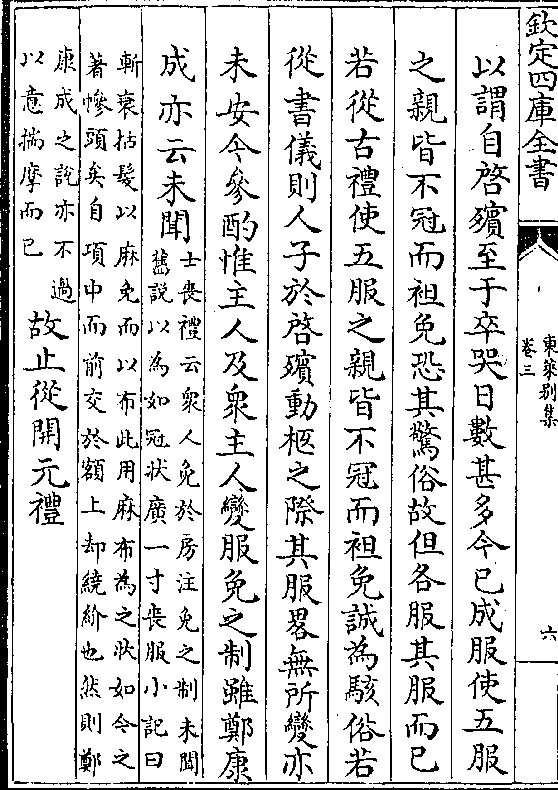 欽定四庫全書
東萊别集
卷三
六
以謂自啓殯至于卒哭日數甚多今已成服使五服
之親皆不冠而袒免恐其驚俗故但各服其服而已
若從古禮使五服之親皆不冠而袒免誠為駭俗若
從書儀則人子於啓殯動柩之際其服畧無所變亦
未安今參酌惟主人及衆主人變服免之制雖鄭康
成亦云未聞
士喪禮云衆人免於房注免之制未聞
舊說以為如冠狀廣一寸喪服小記曰
斬衰括髮以麻免而以布此用麻布為之狀如今之
著幓頭矣自項中而前交於額上却繞紒也然則鄭
康成之說亦不過
以意揣摩而已
故止從開元禮